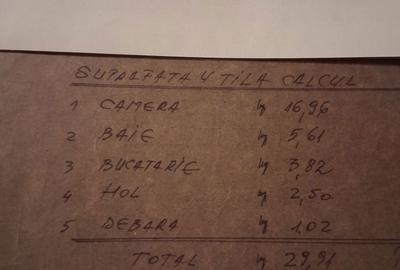 SUPRAFATA UTILA CALCUL
1 CAMERA 16,96
2 BAIE 5,61
3 BUCATARIE 3,82
4 HOL 2,50
5 DEBARA 1,02
TOTAL 29,91